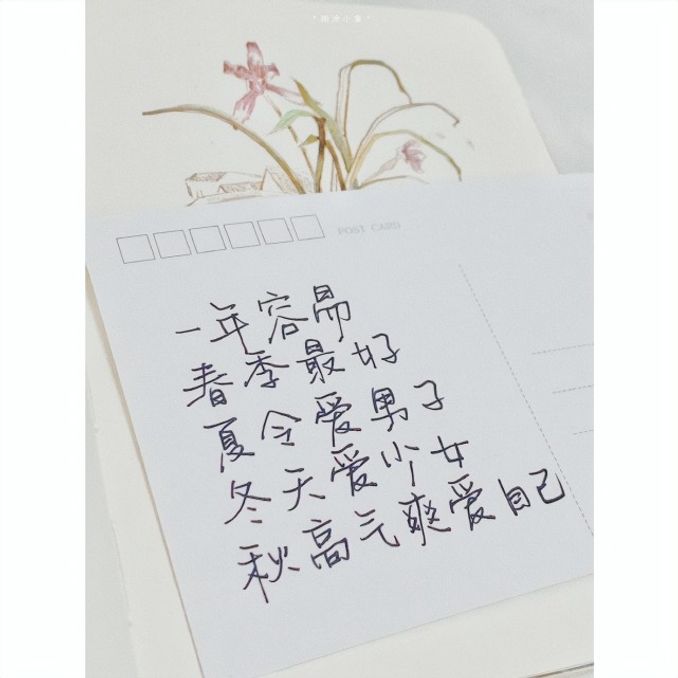 POST CARD
一年容易
春季最好
夏令爱男子
冬天爱少女
秋高气爽爱自己